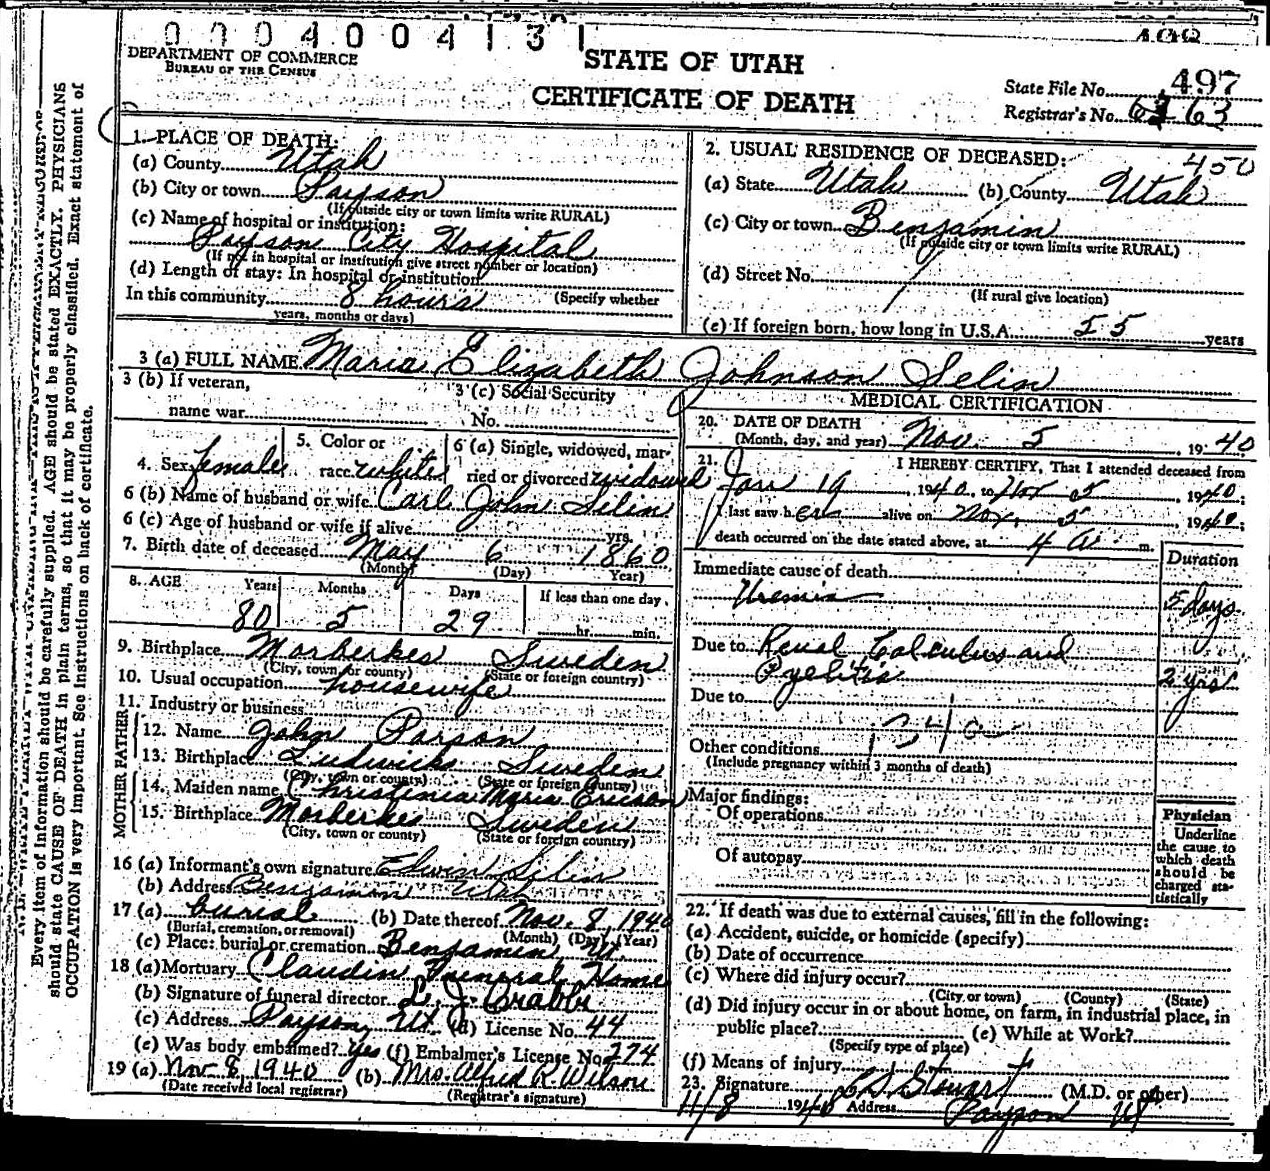 0004004131
DEPARTMENT OF COMMERCE
BUREAU OF THE CENSUS
STATE OF UTAH
CERTIFICATE OF DEATH
State File No. 497
Registrar's No. 63
1. PLACE OF DEATH:
(a) County Utah
(b) City or town Payson
(If outside city or town limits write RURAL)
(c) Name of hospital or institution:
Payson City Hospital
(If not in hospital or institution give street number or location)
(d) Length of stay: In hospital or institution
In this community 8 hours (Specify whether
years, months or days)
2. USUAL RESIDENCE OF DECEASED: 450
(a) State Utah (b) County Utah
(c) City or town Benjamin
(If outside city or town limits write RURAL)
(d) Street No.
(If rural give location)
(e) If foreign born, how long in U.S.A. 55 years
3 (a) FULL NAME Maria Elizabeth Johnson Selin
3 (b) If veteran,
name war
3 (c) Social Security
No.
4. Sex female
5. Color or
race white
6 (a) Single, widowed, mar-
ried or divorced widowed
6 (b) Name of husband or wife Carl John Selin
6 (c) Age of husband or wife if alive yrs.
7. Birth date of deceased May 6 1860
(Month) (Day) Year)
8. AGE Years Months Days If less than one day
80 5 29 hr. min.
9. Birthplace Morberkes Sweden
(City, town or county) (State or foreign country)
10. Usual occupation housewife
11. Industry or business
FATHER
12. Name John Parson
13. Birthplace Sweden
(City, town or county) (State or foreign country)
MOTHER
14. Maiden name Christinia Maria Ericson
15. Birthplace Morberkes Sweden
(City, town or county) (State or foreign country)
16 (a) Informant's own signature Edwin Selin
(b) Address Benjamin Utah
17 (a) burial (b) Date thereof Nov. 8, 1940
(Burial, cremation, or removal) (Month) (Day) (Year)
(c) Place: burial or cremation Benjamin Ut.
18 (a) Mortuary Claudin Funeral Home
(b) Signature of funeral director L. J. Crabb
(c) Address Payson, Ut. (d) License No. 44
(e) Was body embalmed? yes (f) Embalmer's License No. 274
19 (a) Nov 8 1940 (b) Mrs. Alfred R. Wilson
(Date received local registrar) (Registrar's signature)
MEDICAL CERTIFICATION
20. DATE OF DEATH
(Month, day, and year) Nov. 5, 1940
21. I HEREBY CERTIFY, That I attended deceased from
Jan 19, 1940, to Nov 5 1940;
I last saw her alive on Nov. 5 1940;
death occurred on the date stated above, at 4 a. m.
Duration
Immediate cause of death
Uremia 5 days
Due to Renal Calculus and
Pyelitis 2 yrs
Due to
Other conditions
(Include pregnancy within 3 months of death)
Major findings:
Of operations
Of autopsy
Physician
Underline
the cause to
which death
should be
charged sta-
tistically
22. If death was due to external causes, fill in the following:
(a) Accident, suicide, or homicide (specify)
(b) Date of occurrence
(c) Where did injury occur?
(City or town) (County) (State)
(d) Did injury occur in or about home, on farm, in industrial place, in
public place? (e) While at Work?
(Specify type of place)
(f) Means of injury
23. Signature Stewart (M.D. or other)
11/8 1940 Address Payson Ut
Every item of information should be carefully supplied. AGE should be stated EXACTLY. PHYSICIANS
should state CAUSE OF DEATH in plain terms, so that it may be properly classified. Exact statement of
OCCUPATION is very important. See instructions on back of certificate.